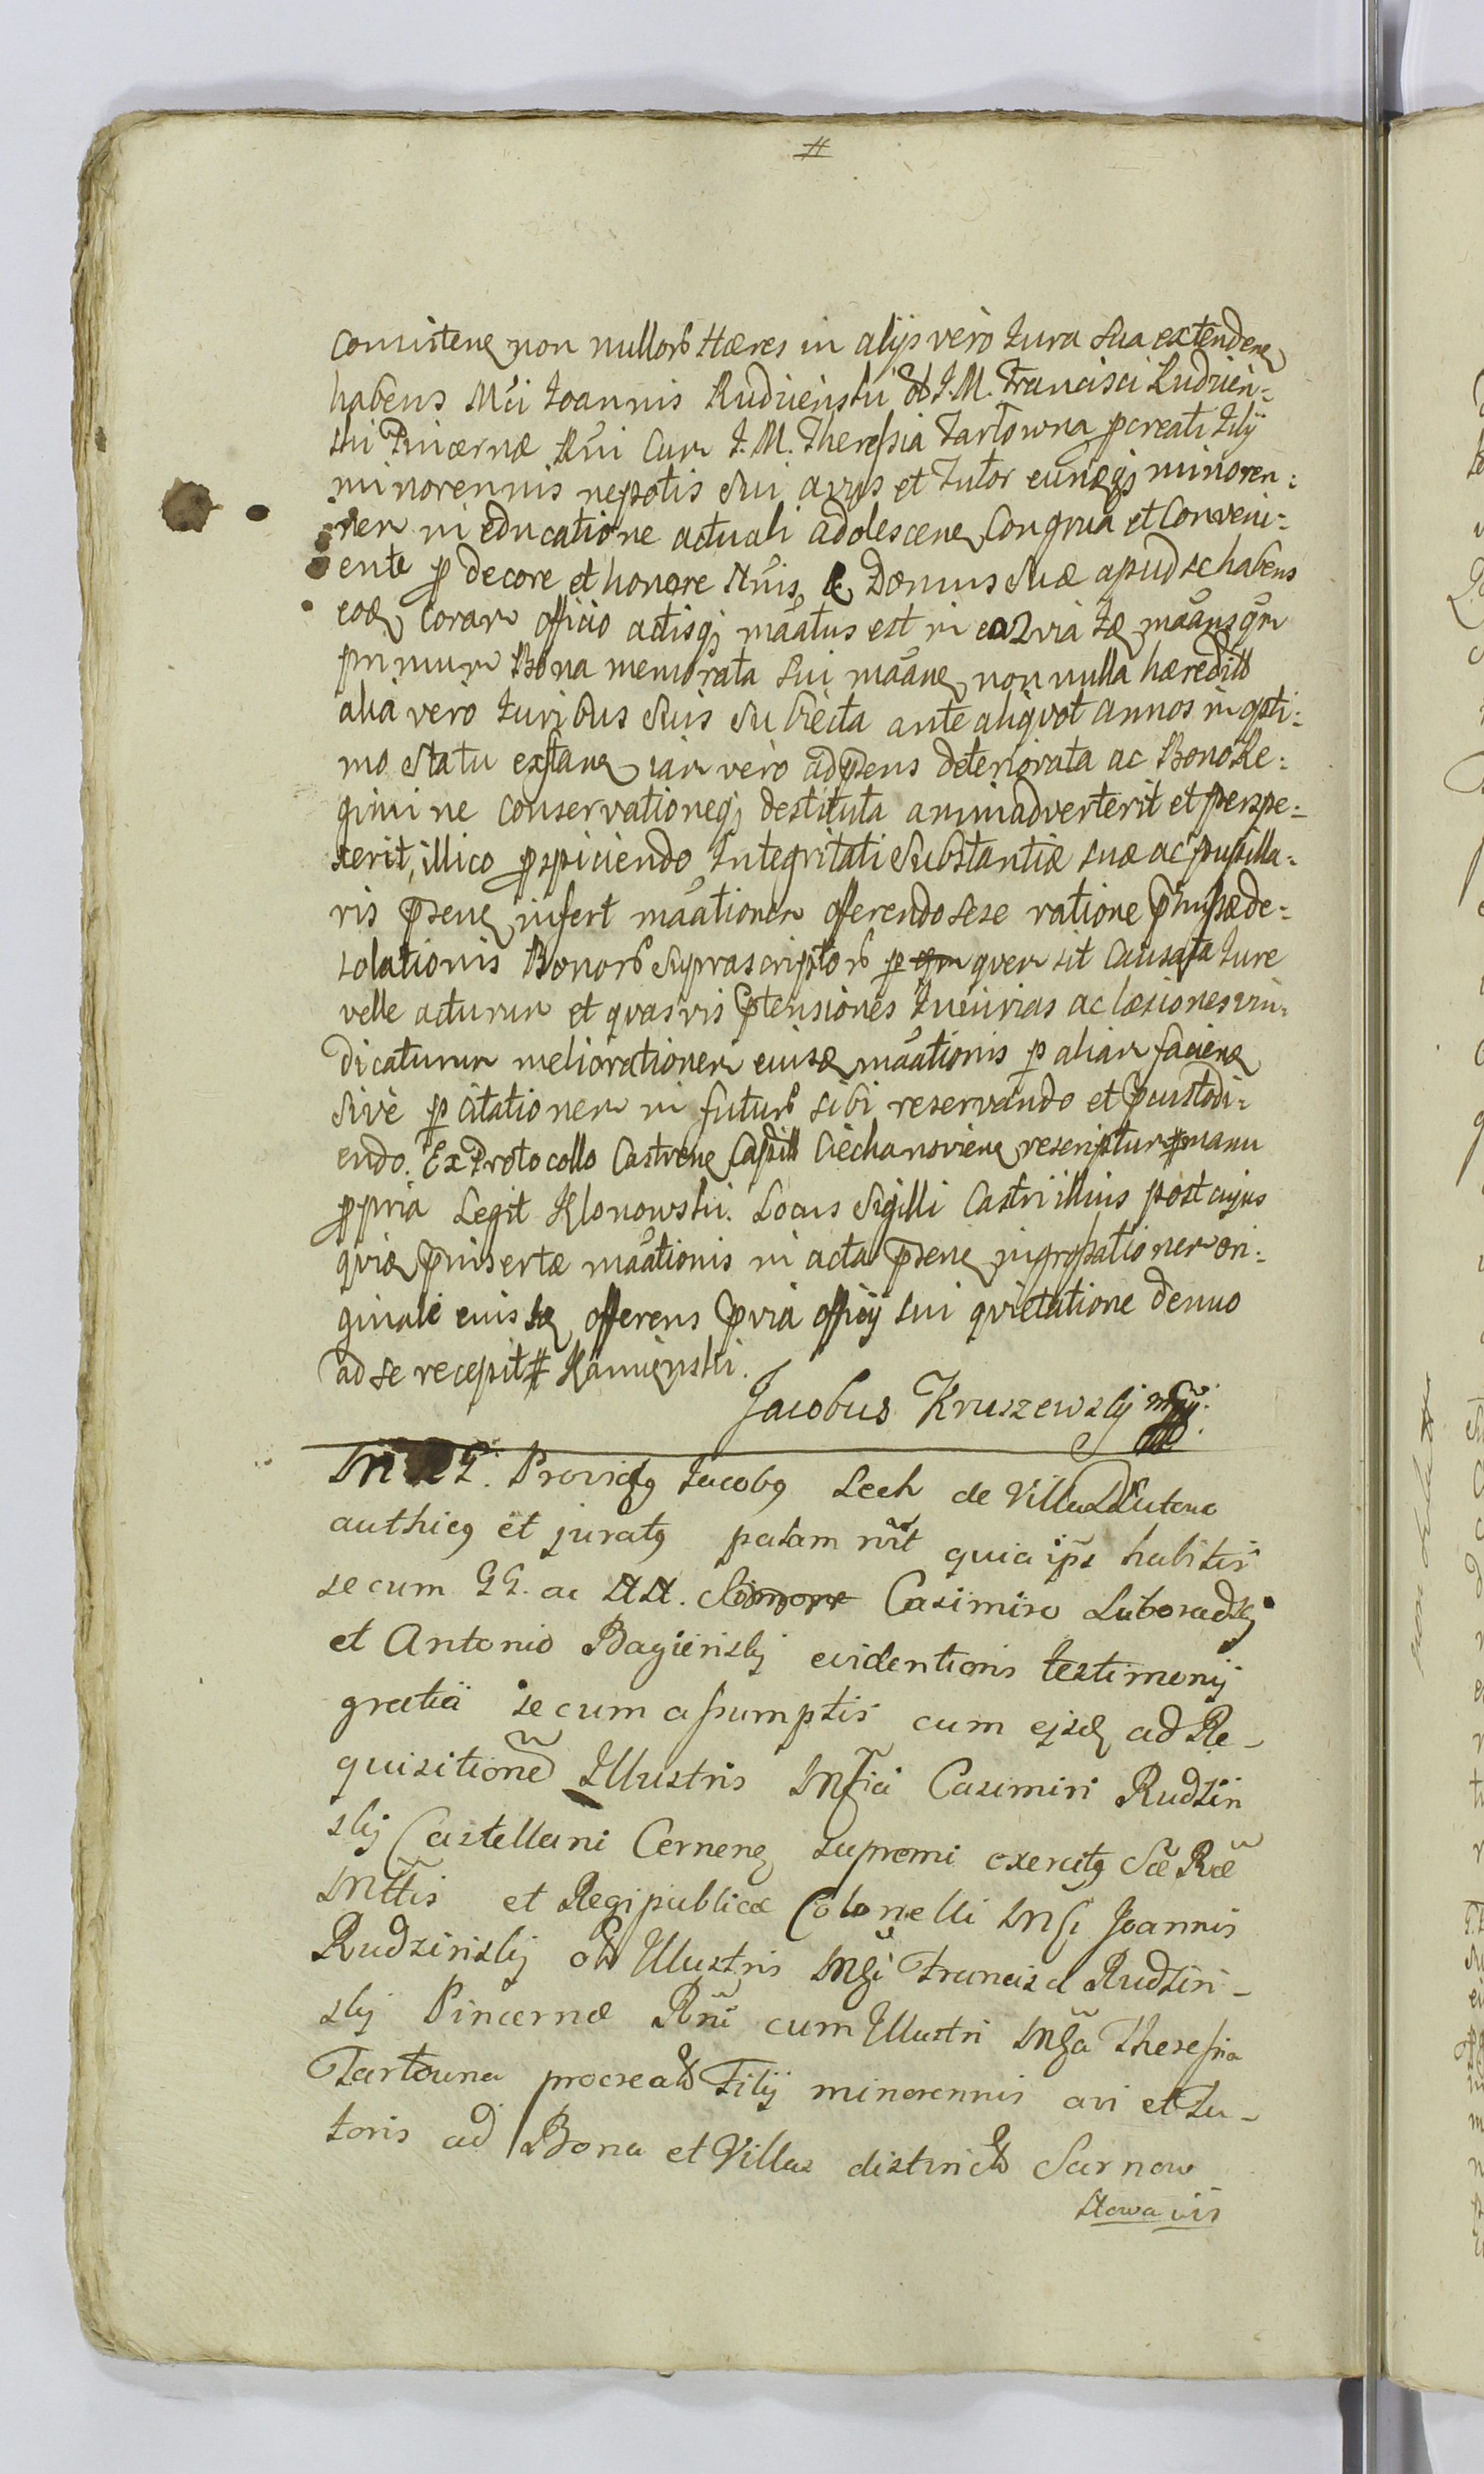 #
consisten non nullorum Hæres in alijs vero Jura sua extenden
habens Mci Joannis Rudzienski olim I. M. Francisci Rudzien-
ski Pincernæ Rni Cum I. M. Theressia Tartowna pcreati Filij
minorennis nepotis sui avus et Tutor eundqj minoren:
nem in educatione actuali adolescen Congrua et Conveni-
ente p decore et honore Nnis & Domus suæ apud se habens
eod coram officio actisqj
primum Bona memorata sui non nulla hæredit
alia vero Juribus suis subiecta ante aliqvot annos in opti:
mo statu exstan iam vero ad psens deteriorata ac Bono Re:
gimine conservationeqj destituta animadverterit et perspe-
xerit, illico pspiciendo Integritati Substantiæ suæ ac pupilla-
ris psen infert mãationem offerendo sese ratione pmissæ de-
solationis Bonorum suprascriptorum p qvem sit causata Jure
velle acturum et qvasvis ptensiones Iniurias ac læsiones vin-
dicaturum meliorationem eiusd mãationis p aliam facien
sive p citationem in futurum sibi reservando et pcustodi-
endo. Ex Protocollo Castren Capitl Ciechanovien rescriptum # manu
ppria Legit Klonowski. Locus Sigilli Castri illius post cujus
qvid pinsertæ mãationis in acta psen ingrossationem ori-
ginale eiusd offerens pvia officij sui qvietatione denuo
ad se recepit # Kamienski.
Jacobus Kruszewskij mp.
Providus Jacobus Lech de Villa
authicus et juratus palam rvit quia ips habitis
secum GG. ac NN. Casimiro Luboradzkj
et Antonio Bagienskj evidentioris testimonij
gratia secum assumptis cum ejsd ad Re-
quisitionem Illustris Mgfici Casimiri Rudzin
skij Castellani Cernen supremi exercitus Sæ Ræ
Mttis et Regipublicæ Colonelli Mgfi Joannis
Rudzinskij olim Illustris Mgfi Francisci Rudzin-
skij Pincernæ Rni cum Illustri Mgfa Theressia
Tartouna procreati Filij minorennis avi et Tu-
toris ad Bona et Villas district Sarnow
Nowa vis